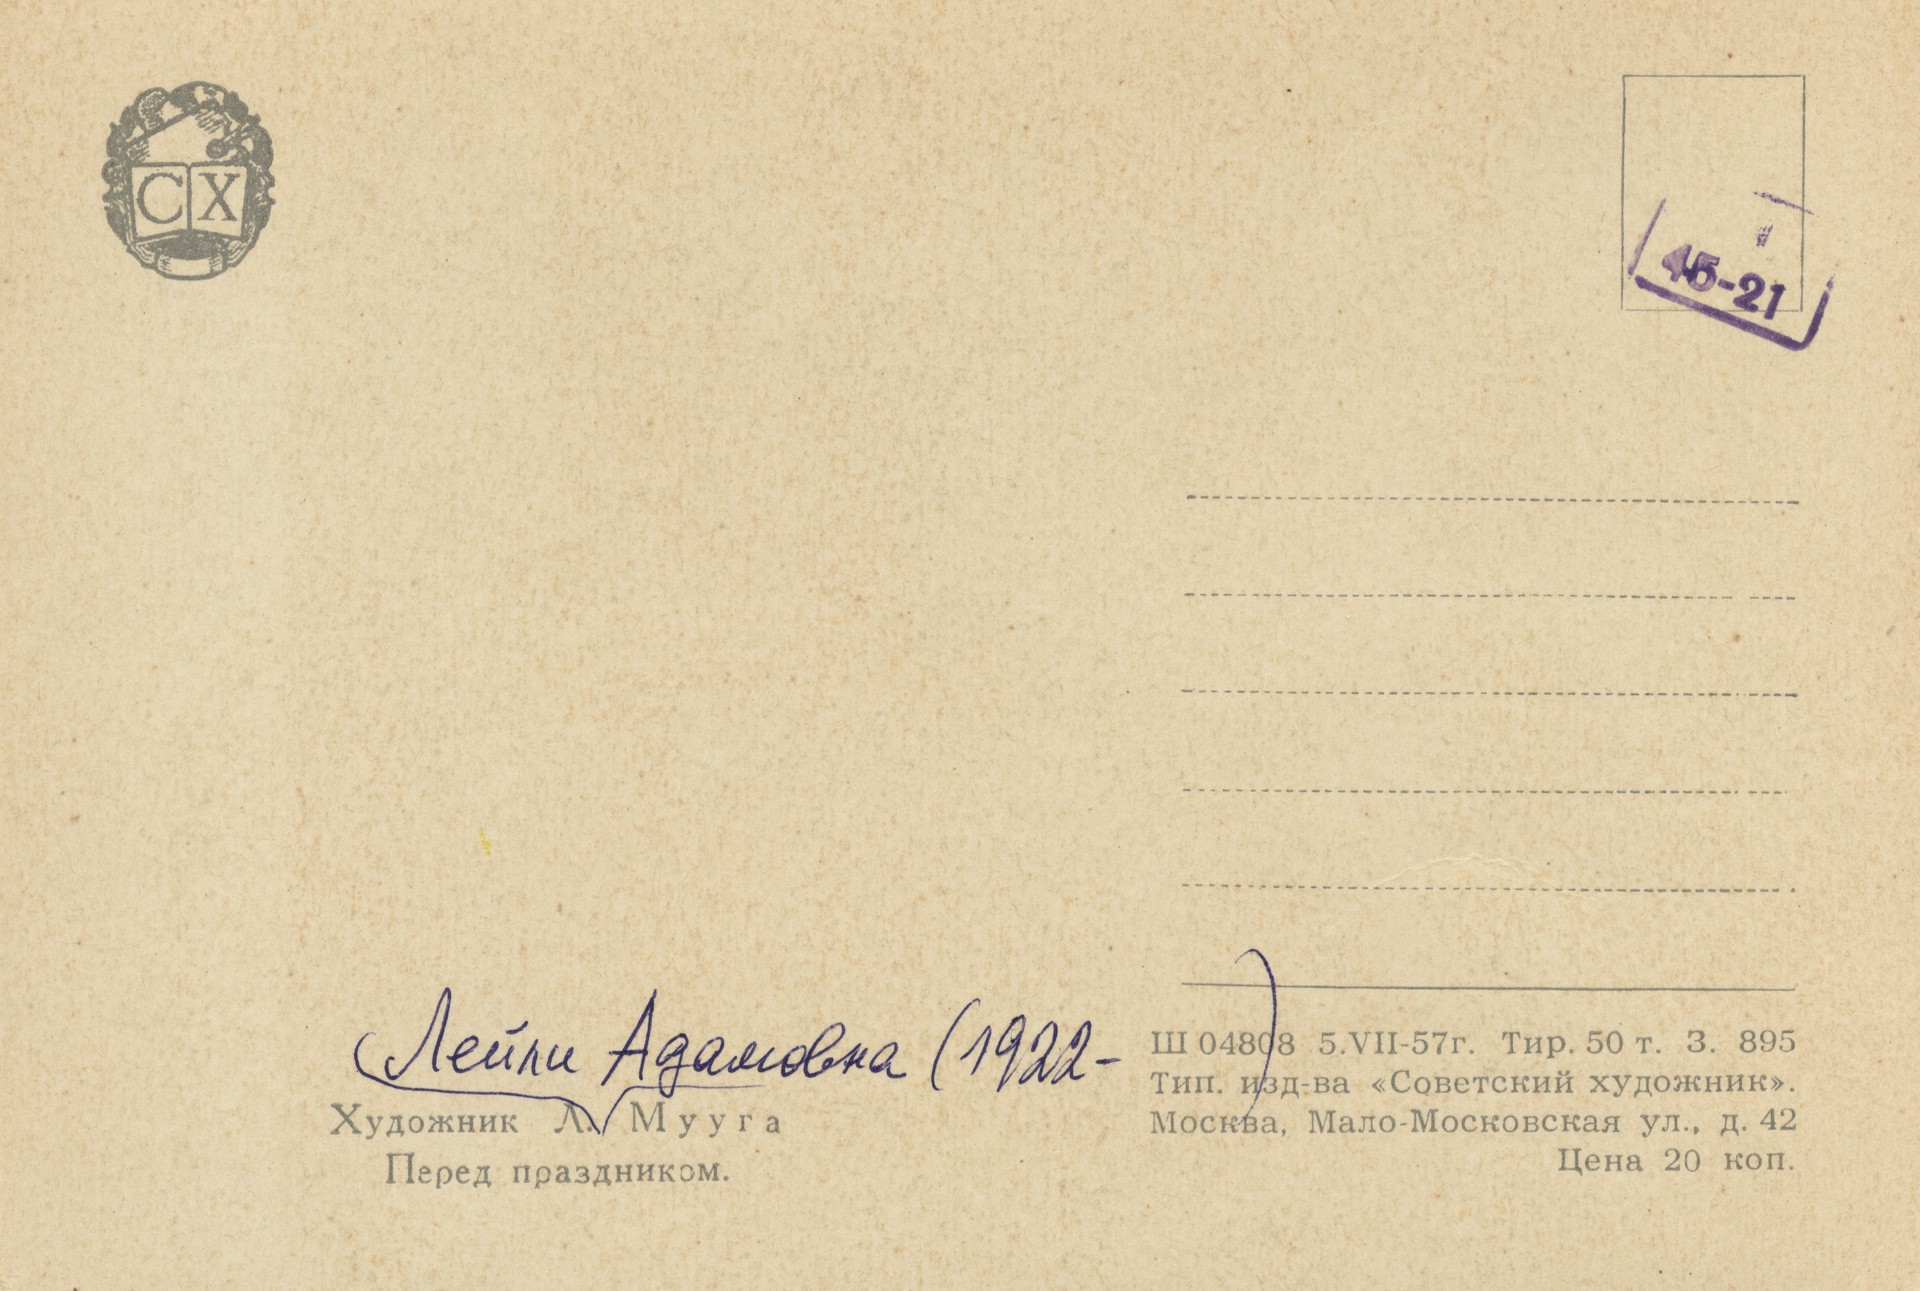 СХ
45-21
Лейли Адамовна (1922- )
Художник Л. Мууга
Перед праздником.
Ш 04808 5.VII-57г. Тир. 50 т. З. 895
Тип. изд-ва «Советский художник».
Москва, Мало-Московская ул., д. 42
Цена 20 коп.